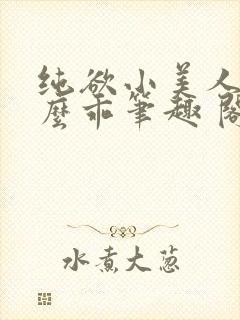 纯欲小美人
麼乖笔趣阁
水煮大葱